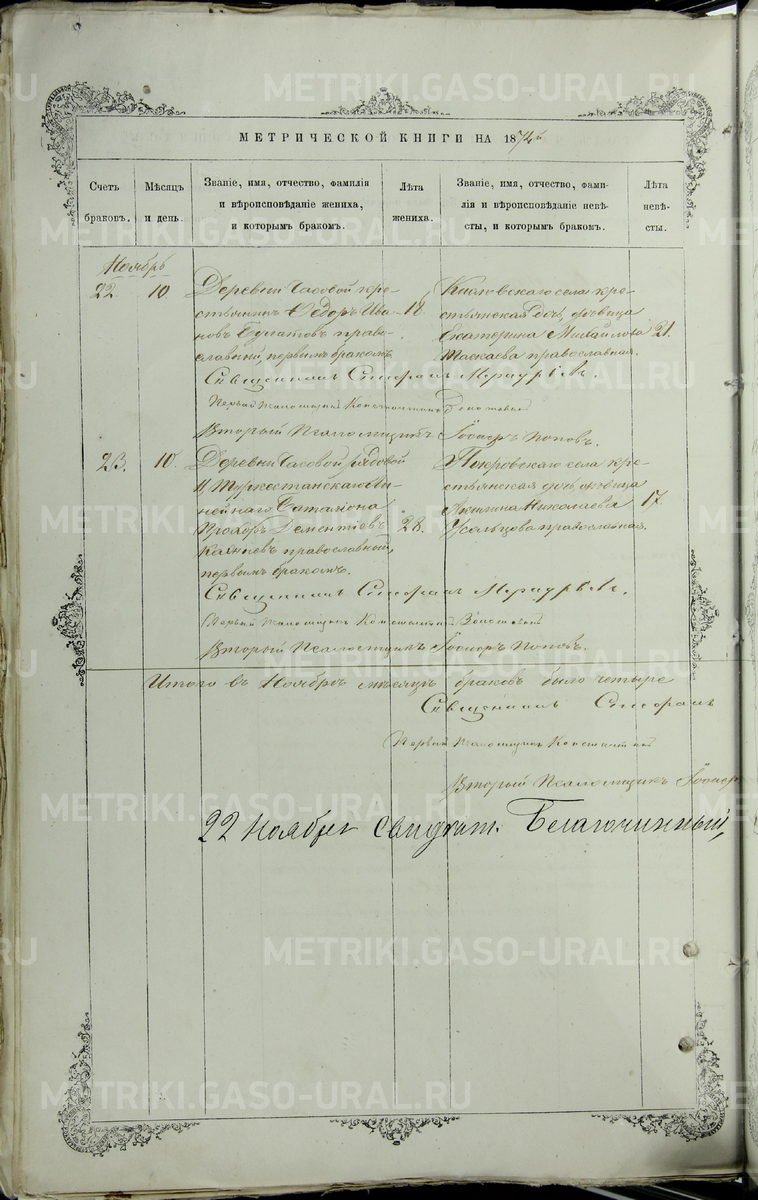 МЕТРИЧЕСКОЙ КНИГИ НА 1872й
Счетъ браковъ.
Мѣсяцъ и день.
Званіе, имя, отчество, фамилія
и вѣроисповѣданіе жениха,
и которымъ бракомъ.
Лѣта
жениха.
Званіе, имя, отчество, фами-
лія и вѣроисповѣданіе невѣ-
сты, и которымъ бракомъ.
Лѣта
невѣ-
сты.
Ноябрь
22
10
Деревни Часовой кре-
стьянинъ Ѳедоръ Ива-
новъ право-
славный, первымъ бракомъ
18.
села кре-
стьянская дочь, дѣвица
Екатерина Михайлова
Таскаева православная.
21.
Священникъ
Первый Псаломщикъ Константинъ
Второй Псаломщикъ Іосифъ Поповъ.
23.
10.
Деревни Часовой рядовой
11 Туркестанскаго Ли-
нейнаго Баталіона
Прохоръ Дементіевъ
православный,
первымъ бракомъ.
28.
Покровскаго села кре-
стьянская дочь, дѣвица
Акилина Николаева
Усольцова православная.
17.
Священникъ
Первый Псаломщикъ Константинъ
Второй Псаломщикъ Іосифъ Поповъ.
Итого въ Ноябрѣ мѣсяцѣ браковъ было четыре
Священникъ
Первый Псаломщикъ Константинъ
Второй Псаломщикъ Іосифъ
22 Ноября свидѣт. Благочинный,
METRIKI.GASO-URAL.RU